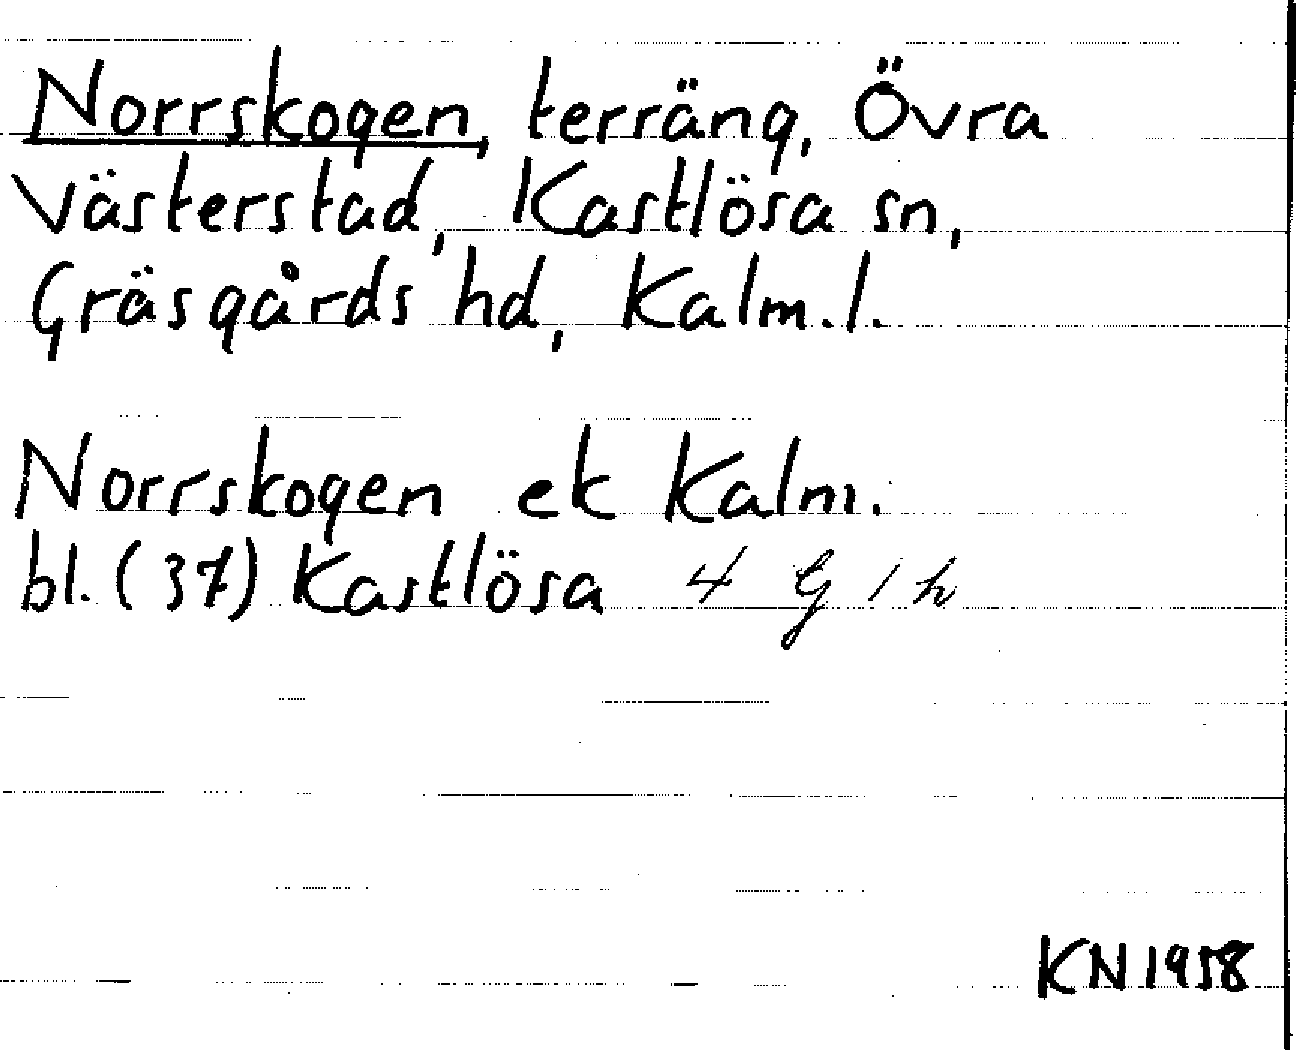 Norrskogen, terräng, Övra
Västerstad, Kastlösa sn,
Gräsgårds hd, Kalm.l.
Norrskogen ek Kalm.
bl. (37) Kastlösa 4 G 1 h
KN 1958